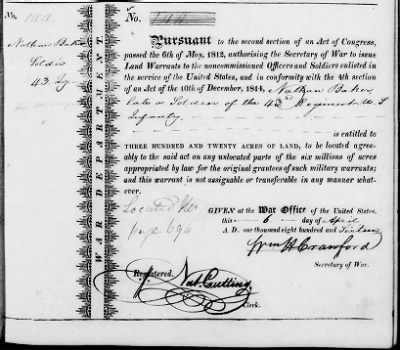 No.
Nathan Baker
43 Inf
WAR DEPARTMENT
No. 144
Pursuant to the second section of an Act of Congress,
passed the 6th of May, 1812, authorising the Secretary of War to issue
Land Warrants to the noncommissioned Officers and Soldiers enlisted in
the service of the United States, and in conformity with the 4th section
of an Act of the 10th of December, 1814, Nathan Baker,
late a Soldier of the 43rd Regiment U. S
Infantry.
is entitled to
THREE HUNDRED AND TWENTY ACRES OF LAND, to be located agreeably
to the said act on any unlocated parts of the six millions of acres
appropriated by law for the original grantees of such military warrants;
and this warrant is not assignable or transferable in any manner what-
ever.
Located
page 694
GIVEN at the War Office of the United States,
this 6 day of April
A. D. one thousand eight hundred and Sixteen
Wm H Crawford
Secretary of War.
Registered.
Nat. Cutting,
Clerk.